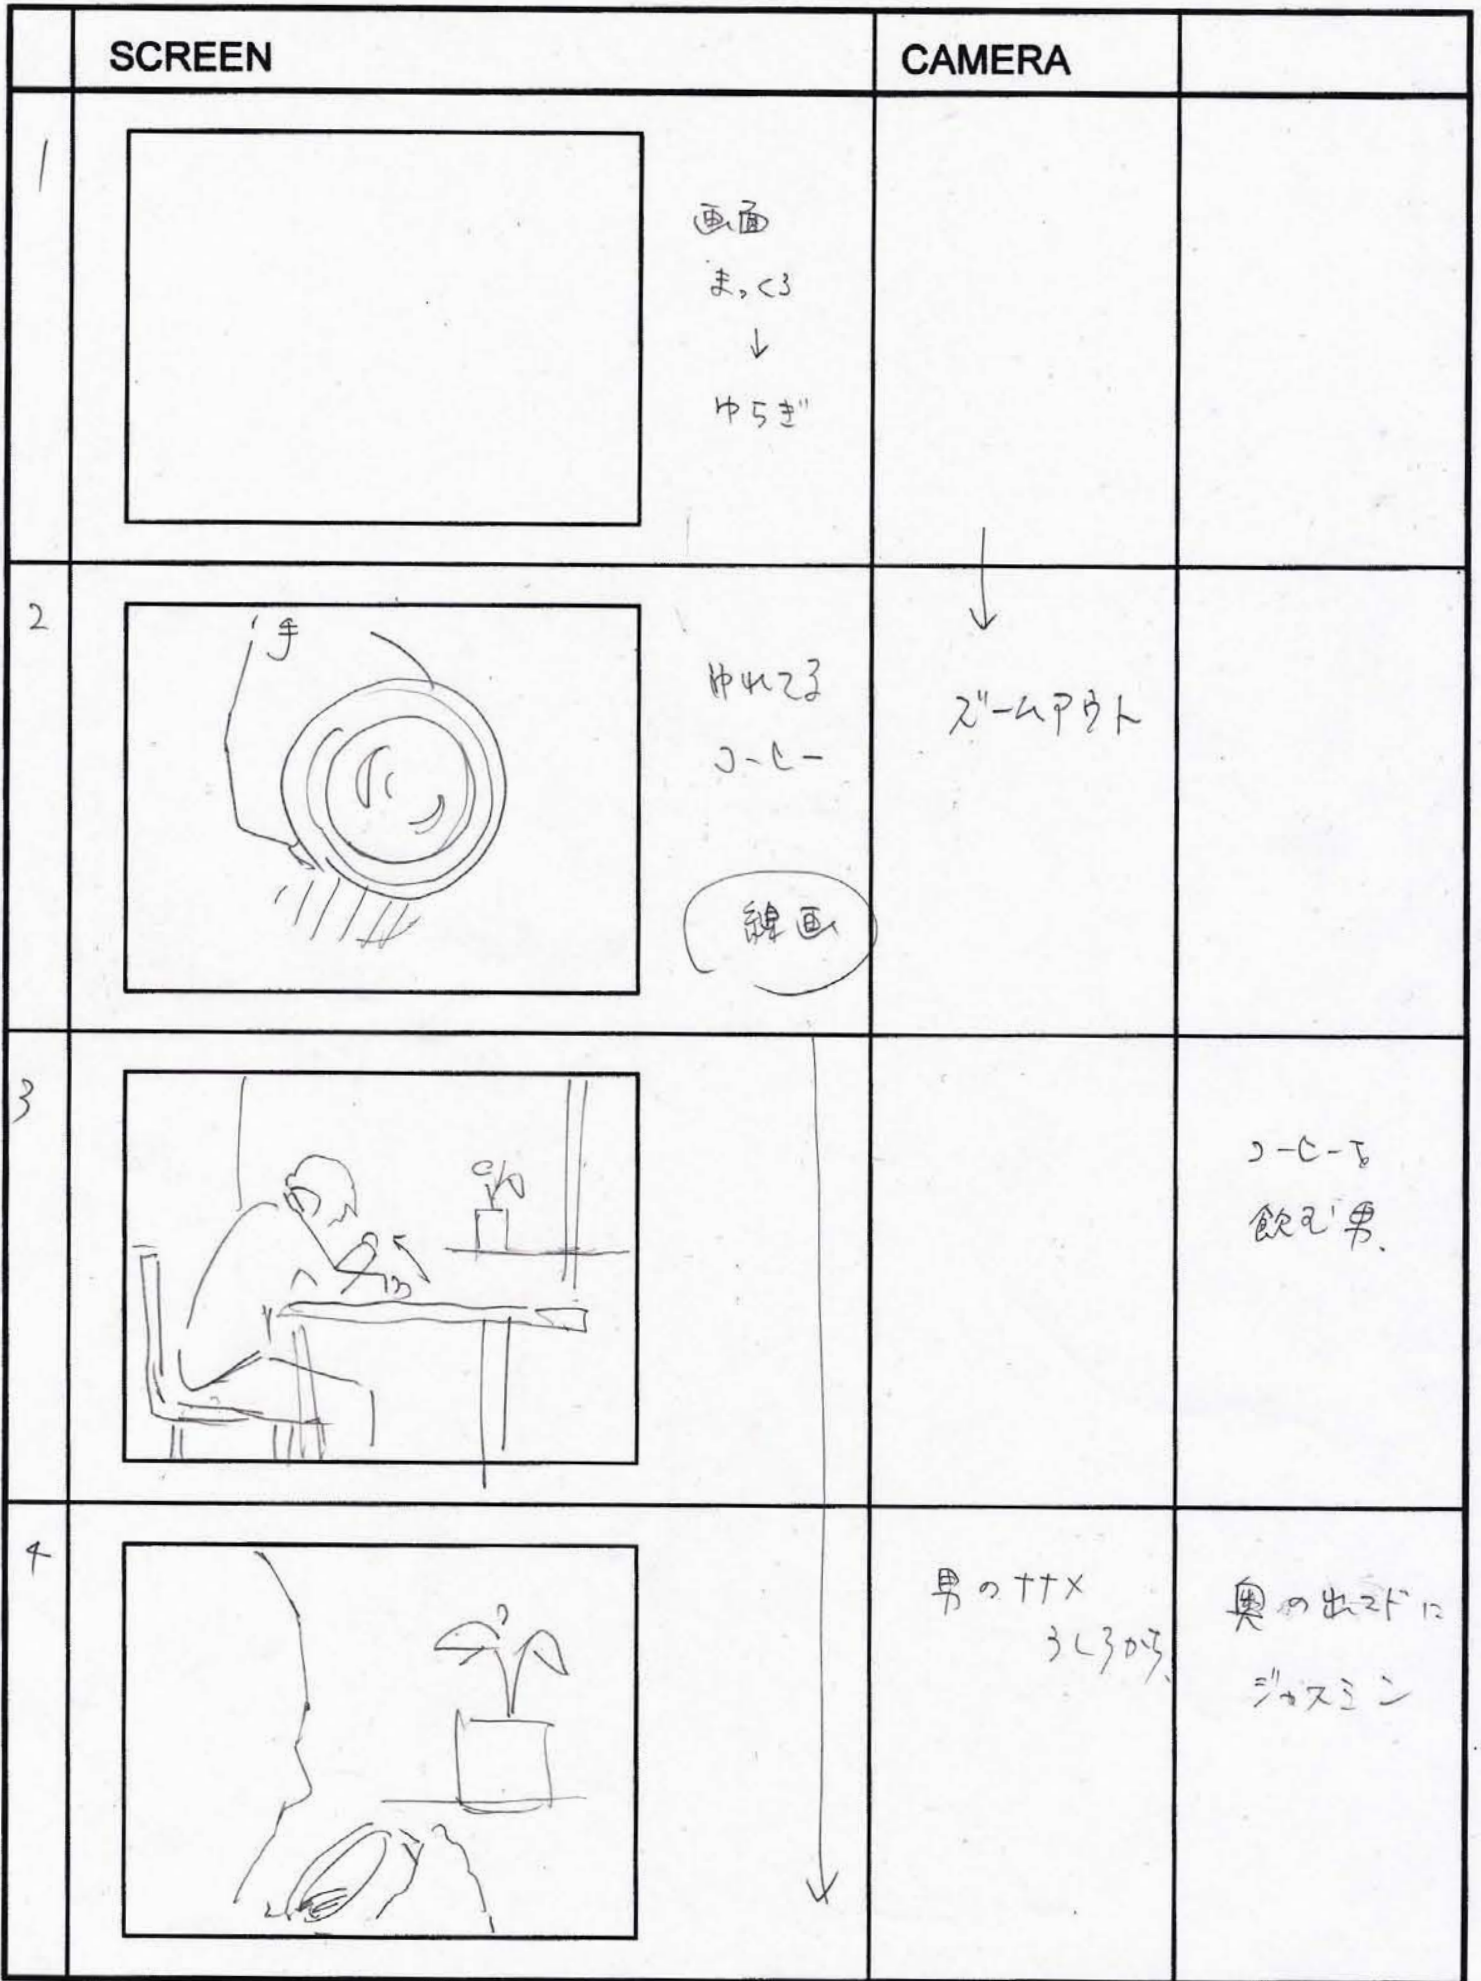 SCREEN
CAMERA
1
画面
まっくろ
↓
ゆらぎ
2
手
ゆれてる
コーヒー
線画
↓
ズームアウト
3
コーヒーを
飲む男、
4
男のナナメ
うしろから、
奥の出マドに
ジャスミン